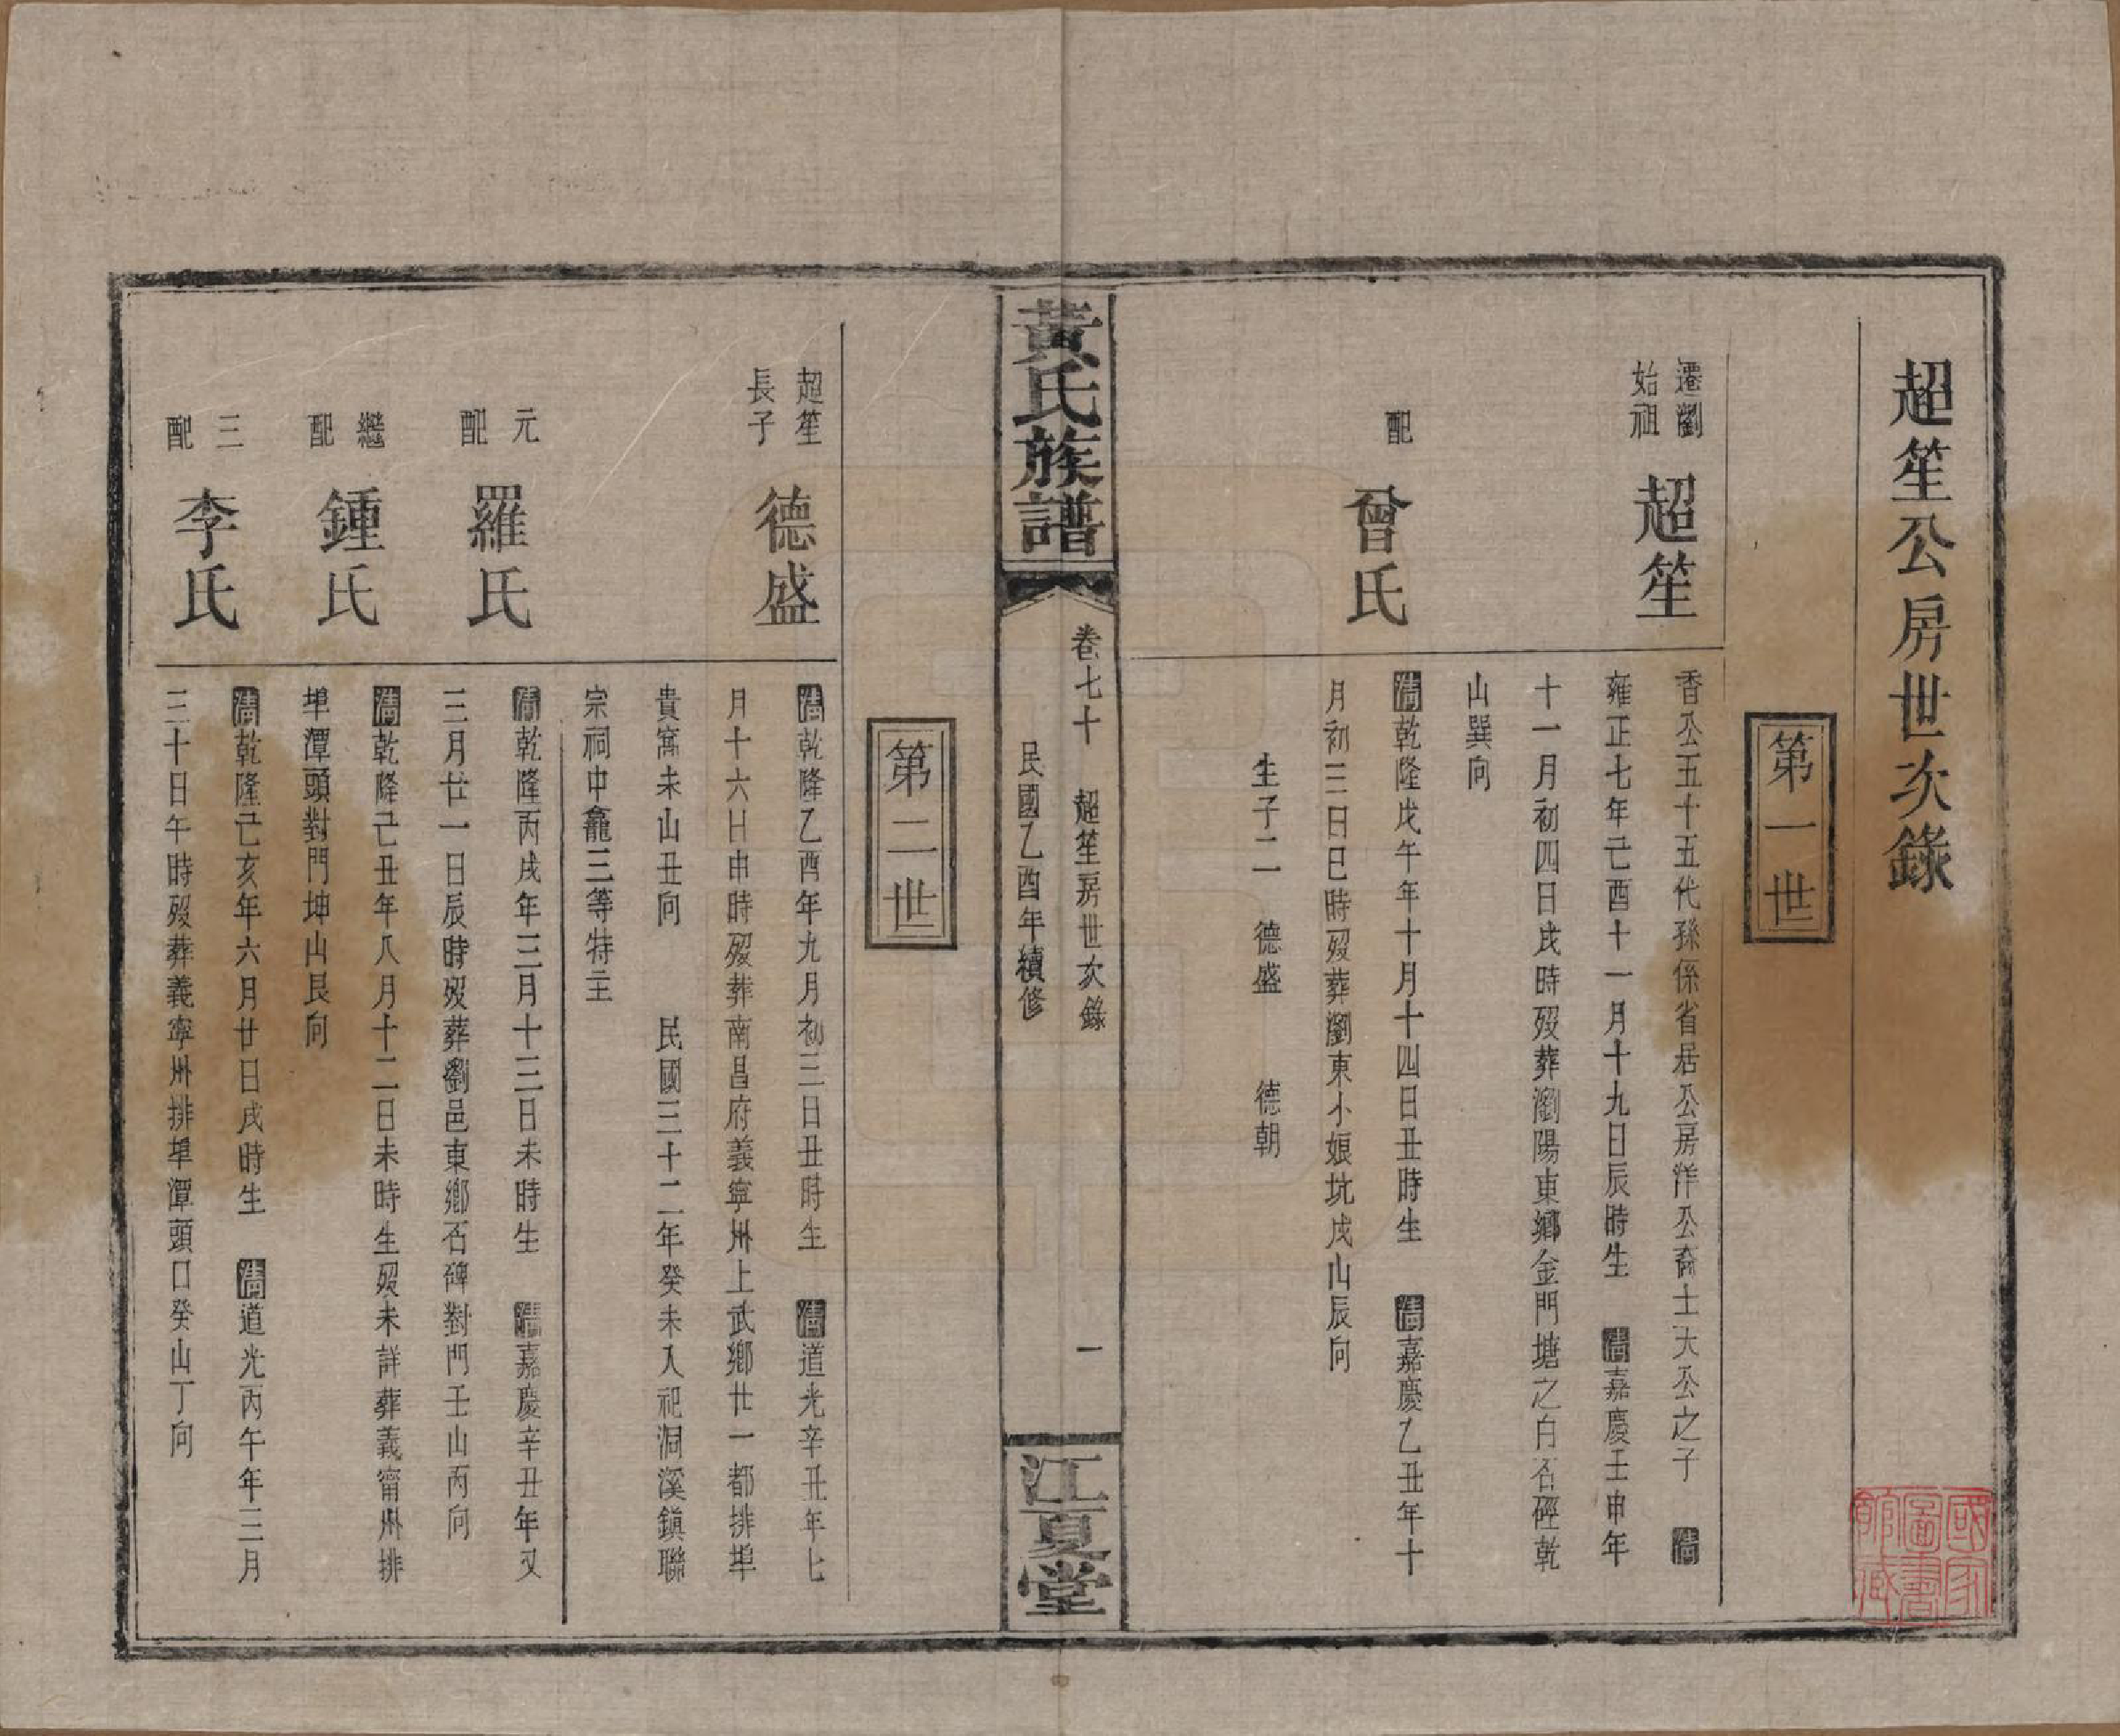 超笙公房世次錄
第一世
遷瀏
始祖
超笙
香公五十五代孫係省居公房洋公裔士大公之子 清
雍正七年己酉十一月十九日辰時生 清嘉慶壬申年
十一月初四日戌時歿葬瀏陽東鄉金門塘之白石硜乾
山巽向
配
曾氏
清乾隆戊午年十月十四日丑時生 清嘉慶乙丑年十
月初三日巳時歿葬瀏東小娘坑戌山辰向
生子二 德盛 德朝
黃氏族譜
卷七十 超笙房世次錄 一
民國乙酉年續修
江夏堂
第二世
超笙
長子
德盛
清乾隆乙酉年九月初三日丑時生 清道光辛丑年七
月十六日申時歿葬南昌府義寧州上武鄉廿一都排埠
貴窩未山丑向 民國三十二年癸未入祀洞溪鎮聯
宗祠中龕三等特主
元
配
羅氏
清乾隆丙戌年三月十三日未時生 清嘉慶辛丑年又
三月廿一日辰時歿葬劉邑東鄉石碑對門壬山丙向
繼
配
鍾氏
清乾隆己丑年八月十二日未時生歿未詳葬義甯州排
埠潭頭對門坤山艮向
三
配
李氏
清乾隆己亥年六月廿日戌時生 清道光丙午年三月
三十日午時歿葬義寧州排埠潭頭口癸山丁向
國家
圖書
館藏